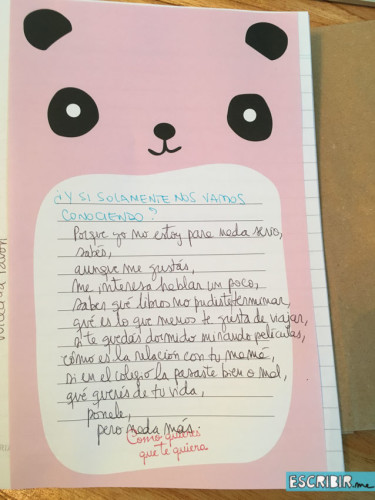 ¿Y SI SOLAMENTE NOS VAMOS
CONOCIENDO?
Porque yo no estoy para nada serio,
sabés,
aunque me gustás,
me interesa hablar un poco,
saber qué libros no pudiste terminar,
qué es lo que menos te gusta de viajar,
si te quedás dormido mirando películas,
cómo es la relación con tu mamá,
si en el colegio la pasaste bien o mal,
qué querés de tu vida,
ponele,
pero nada más.
Como quieres
que te quiera
ESCRIBIR.me